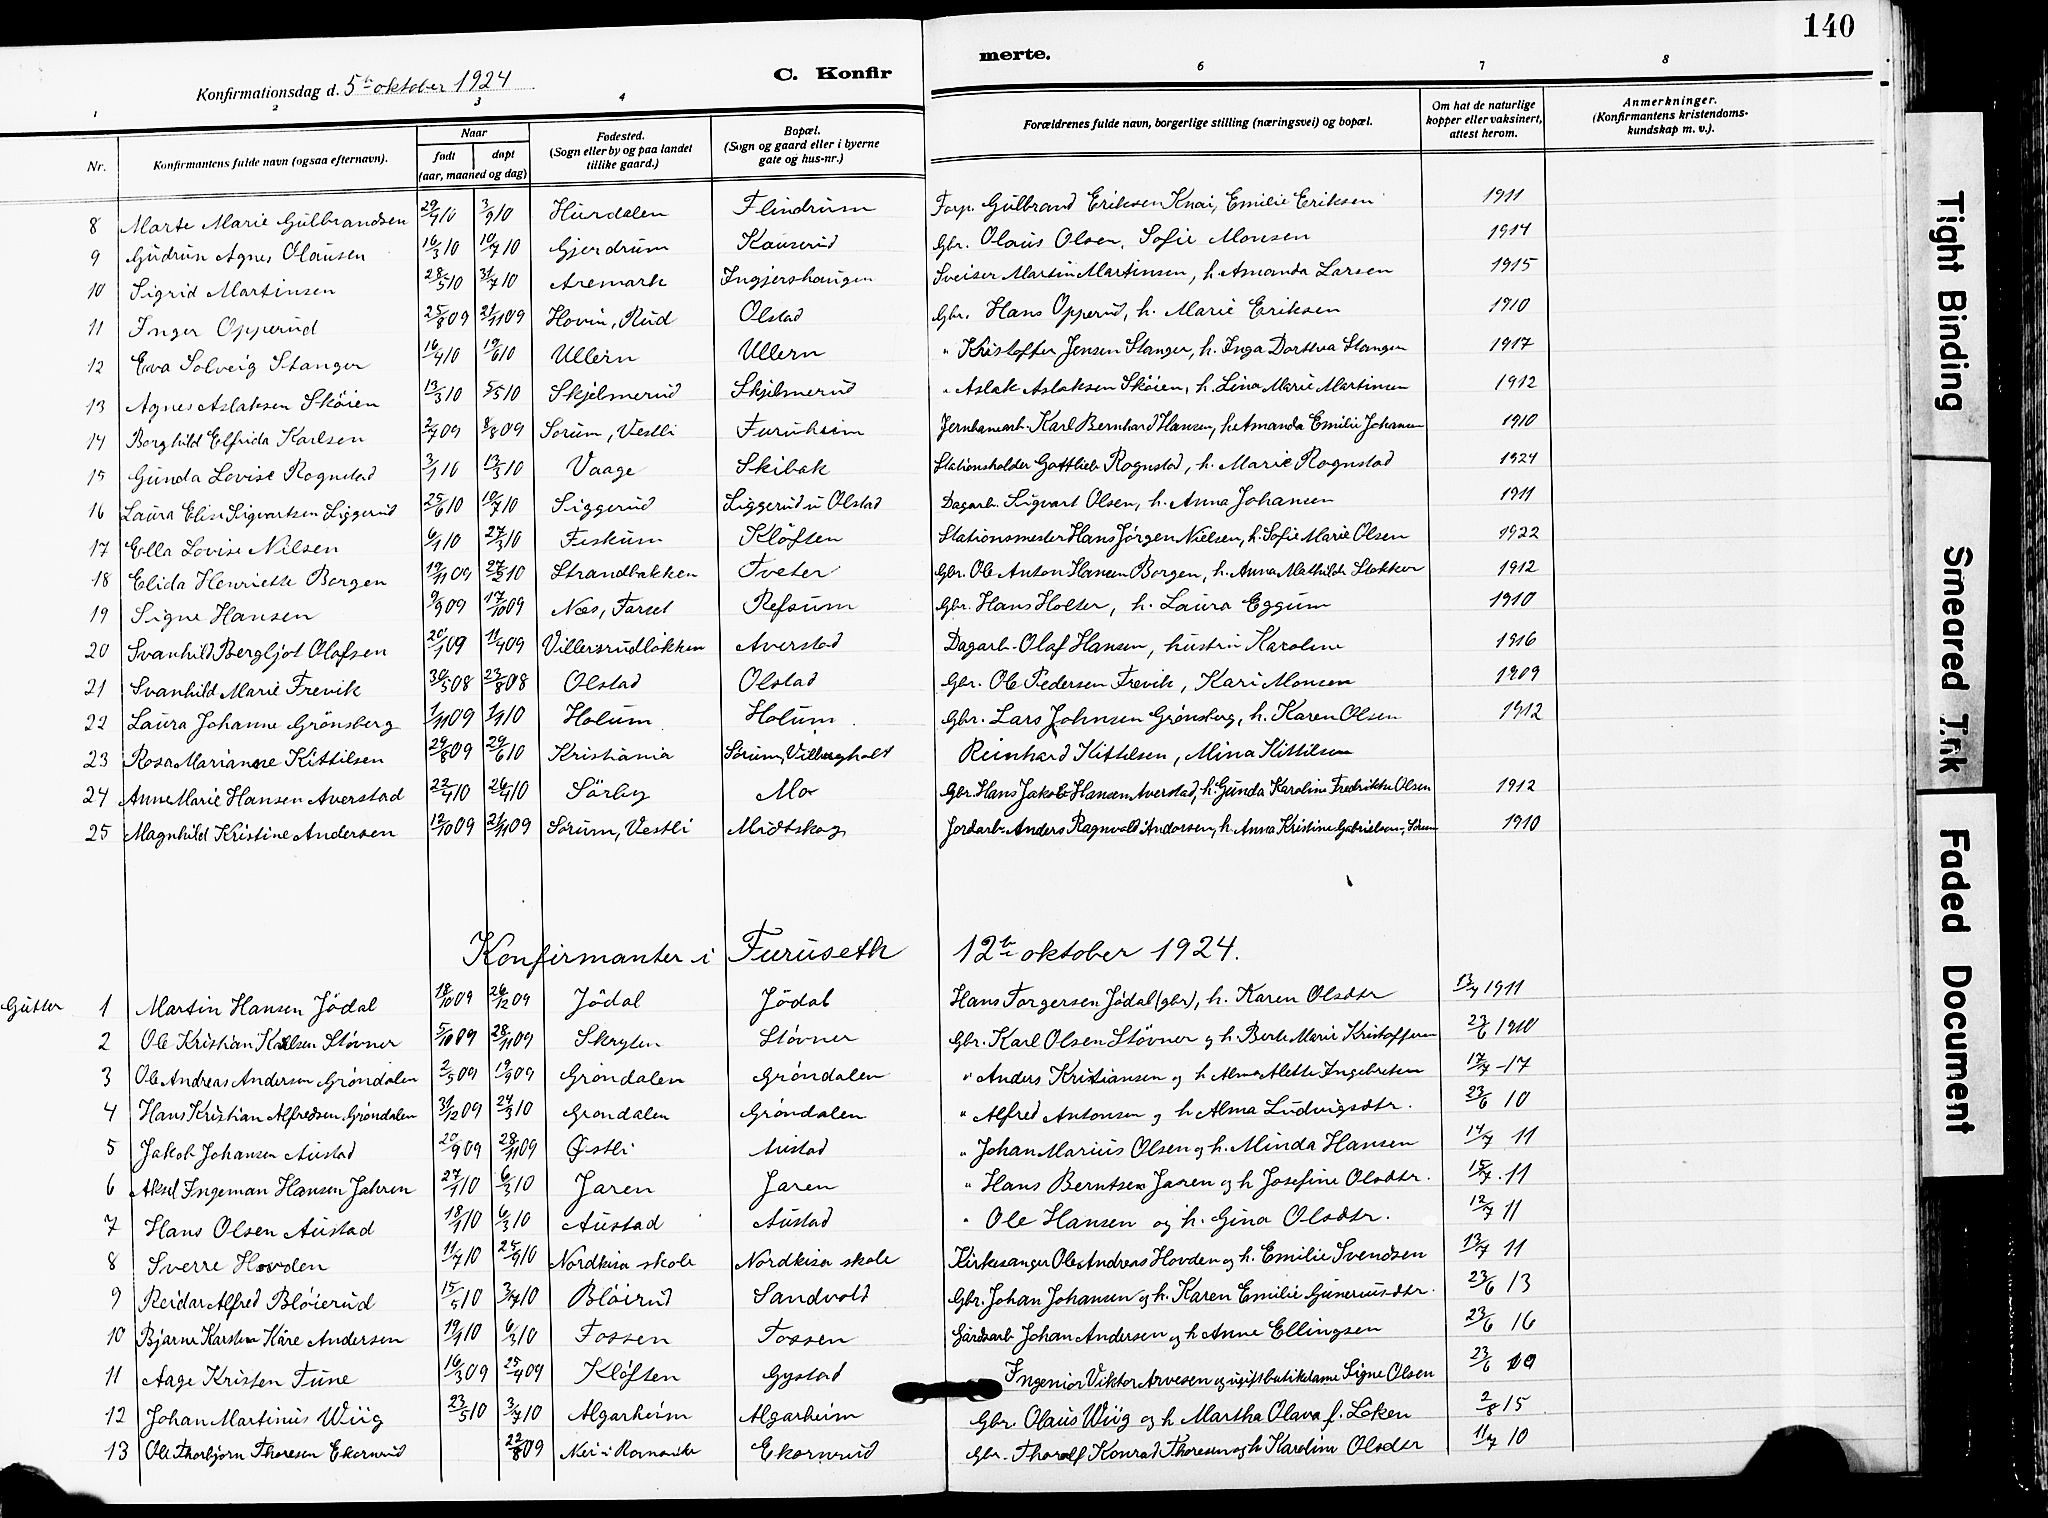 140
C. Konfirmerte.
Konfirmationsdag d. 5te oktober 1924
1 2 3 4 6 7 8
Nr. Konfirmantens fulde navn (ogsaa efternavn). Naar født døpt (aar, maaned og dag) Fødested. (Sogn eller by og paa landet tillike gaard.) Bopæl. (Sogn og gaard eller i byerne gate og hus-nr.) Forældrenes fulde navn, borgerlige stilling (næringsvei) og bopæl. Om hat de naturlige kopper eller vaksinert, attest herom. Anmerkninger. (Konfirmantens kristendoms-kundskap m. v.).
8 Marte Marie Gulbrandsen 29/4 10 3/9 10 Hurdalen Flindrum Forp. Gulbrand Eriksen Knai, Emilie Eriksen 1911
9 Gudrun Agnes Olausen 16/3 10 10/7 10 Gjerdrum Kauserud Gbr. Olaus Olsen, Sofie Monsen 1914
10 Sigrid Martinsen 28/5 10 31/7 10 Aremark Ingjershaugen Sveiser Martin Martinsen, h. Amanda Larsen 1915
11 Inger Opperud 25/8 09 21/11 09 Hovin, Rud Olstad Gbr. Hans Opperud, h. Marie Eriksen 1910
12 Eva Solveig Stanger 16/4 10 19/6 10 Ullern Ullern " Kristoffer Jensen Stanger, h. Inga Dorthea Stangen 1917
13 Agnes Aslaksen Skøien 13/3 10 5/5 10 Skjelmerud Skjelmerud " Aslak Aslaksen Skøien, h. Lina Marie Martinsen 1912
14 Borghild Elfrida Karlsen 2/7 09 8/8 09 Sørum, Vestli Furuheim Jernbanearb. Karl Bernhard Hansen, h. Amanda Emilie Johansen 1910
15 Gunda Lovise Rognstad 3/1 10 13/3 10 Vaage Skibak Stationsholder Gottlieb Rognstad, h. Marie Rognstad 1924
16 Laura Elise Sigvartsen Liggerud 25/6 10 10/7 10 Liggerud Liggerud u Olstad Dagarb. Sigvart Olsen, h. Anna Johansen 1911
17 Ella Lovise Nilsen 6/1 10 27/3 10 Fiskum Kløften Stationsmester Hans Jørgen Nielsen, h. Sofie Marie Olsen 1922
18 Elida Henriette Borgen 19/11 09 27/2 10 Strandbakken Tveter Gbr. Ole Anton Hansen Borgen, h. Anna Mathilde Stokker 1912
19 Signe Hansen 9/9 09 17/10 09 Nes, Farset Refsum Gbr. Hans Holter, h. Laura Eggum 1910
20 Svanhild Bergljot Olafsen 20/1 09 11/4 09 Villersrudløkken Averstad Dagarb. Olaf Hansen, hustru Karoline 1916
21 Svanhild Marie Frevik 30/5 08 23/8 08 Olstad Olstad Gbr. Ole Pedersen Frevik, Kari Monsen 1909
22 Laura Johanne Grønsberg 1/11 09 1/1 10 Holum Holum Gbr. Lars Johnsen Grønsberg, h. Karen Olsen 1912
23 Rosa Marianne Kittilsen 29/8 09 29/6 10 Kristiania Sørum, Vilbergholt Reinhard Kittilsen, Mina Kittilsen
24 Anne Marie Hansen Averstad 22/4 10 26/4 10 Sørby Mo Gbr. Hans Jakob Hansen Averstad, h. Gunda Karoline Fredrikke Olsen 1912
25 Magnhild Kristine Andersen 12/10 09 21/11 09 Sørum, Vestli Midtskog Jordarb. Anders Ragnvald Andersen, h. Anna Kristine Gabrielsen, Sørum 1910
Konfirmanter i Furuseth 12te oktober 1924.
Gutter 1 Martin Hansen Jødal 18/10 09 26/12 09 Jødal Jødal Hans Torgersen Jødal (gbr), h. Karen Olsdtr 13/7 1911
2 Ole Kristian Karlsen Støvner 5/10 09 28/11 09 Skryten Støvner Gbr. Karl Olsen Støvner og h. Berte Marie Kristoffersen 23/6 1910
3 Ole Andreas Andersen Grøndalen 2/5 09 19/9 09 Grøndalen Grøndalen " Anders Kristiansen og h. Alma Alette Ingebretsen 17/7 -17
4 Hans Kristian Alfredsen Grøndalen 31/12 09 24/3 10 Grøndalen Grøndalen " Alfred Antonsen og h Alma Ludvigsdtr. 23/6 10
5 Jakob Johansen Austad 20/9 09 28/11 09 Østli Austad " Johan Marius Olsen og h. Minda Hansen 14/7 11
6 Aksel Ingeman Hansen Jahren 27/1 10 6/3 10 Jaren Jaren " Hans Berntsen Jaren og h Josefine Olsdtr. 15/7. 11
7 Hans Olsen Austad 18/1 10 6/3 10 Austad Austad " Ole Hansen og h. Gina Olsdtr. 12/7 11
8 Sverre Hovden 11/7 10 25/9 10 Nordkisa skole Nordkisa skole Kirkesanger Ole Andreas Hovden og h. Emilie Svendsen 13/7 11
9 Reidar Alfred Bløierud 15/5 10 3/7 10 Bløirud Sandvold Gbr. Johan Johansen og h. Karen Emilie Guneriusdtr. 23/6 13
10 Bjarne Karsten Kåre Andersen 19/1 10 6/3 10 Fossen Fossen Gårdsarb. Johan Andersen og h Anne Ellingsen 23/6 16
11 Aage Kristen Tune 16/3 09 25/4 09 Kløften Gystad Ingeniør Viktor Arvesen og ugift butikdame Signe Olsen 23/6 10
12 Johan Martinus Wiig 23/5 10 3/7 10 Algarheim Algarheim Gbr. Olaus Wiig og h Martha Olava f. Løken 2/8 15
13 Ole Thorbjørn Thoresen Ekornrud 22/8 09 Ekornrud Gbr. Thorolf Konrad Thoresen og h Karoline Olsdtr 11/7 10
Tight Binding
Smeared Trk
Faded Document